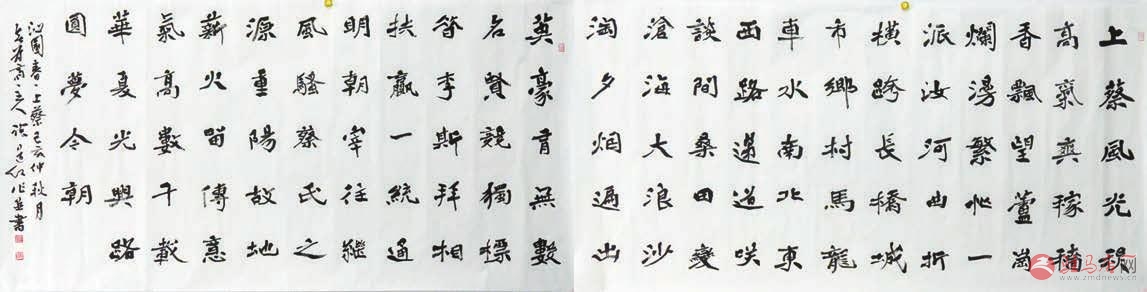 上蔡風光秋
高氣爽稼穡
香飄望蘆崗
爛漫繁忙一
派汝河曲折
橫跨長橋城
市鄉村馬龍
車水南北東
西路道咲
談間桑田變
滄海大浪沙
淘夕烟遍出
英豪育無數
名賢競獨標
看李斯拜相
扶嬴一統通
明朝宰往繼
風騷蔡氏之
源重陽故地
薪火留傳意
氣高數千載
華夏光興路
圓夢今朝
沁園春·上蔡己亥仲秋月
作並書
www.zmdnews.cn